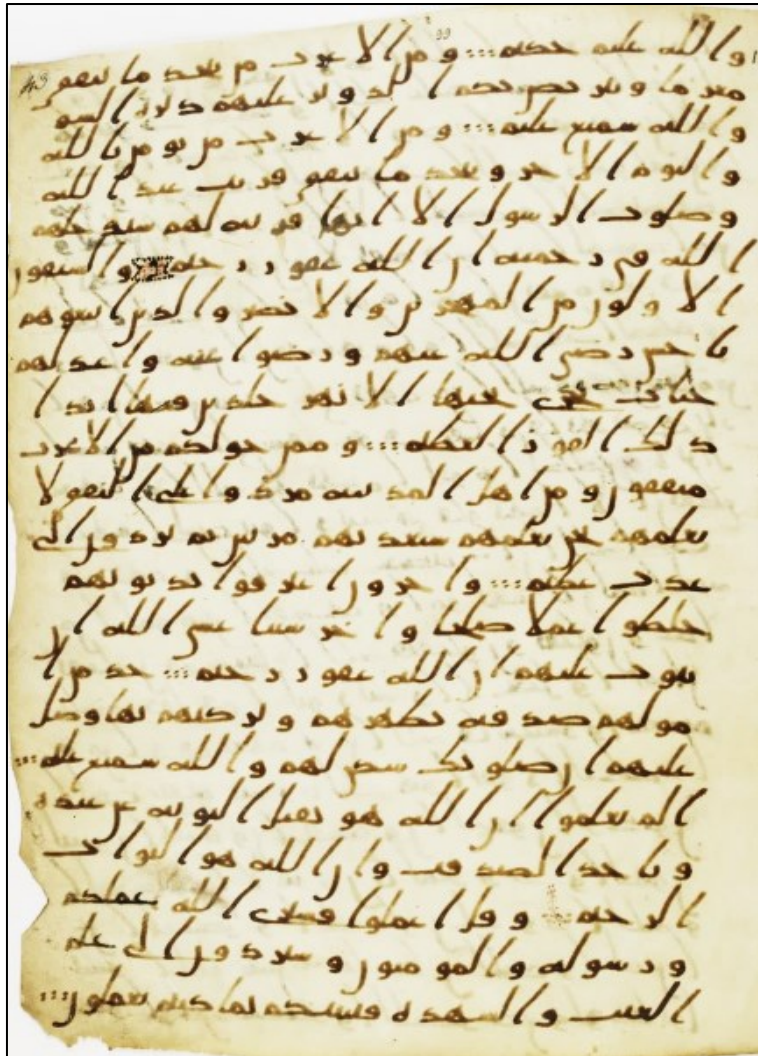 43
والله عليم حكيم ومن الاعرب من يتخذ ما ينفق
مغرما ويتربص بكم الدوير عليهم دايرة السو
والله سميع عليم ومن الاعرب من يومن بالله
واليوم الاخر ويتخذ ما ينفق قربت عند الله
وصلوت الرسول الا انها قربة لهم سيدخلهم
الله في رحمته ان الله غفور رحيم والسبقون
الاولون من المهجرين والانصر والذين اتبعوهم
باحسن رضي الله عنهم ورضوا عنه واعد لهم
جنات تجري تحتها الانهر خلدين فيها ابدا
ذلك الفوز العظيم وممن حولكم من الاعرب
منفقون ومن اهل المدينة مردوا على النفق لا
تعلمهم نحن نعلمهم سنعذبهم مرتين ثم يردون الى
عذب عظيم واخرون اعترفوا بذنوبهم
خلطوا عملا صلحا واخر سيا عسى الله ان
يتوب عليهم ان الله غفور رحيم خذ من ا
مولهم صدقة تطهرهم وتزكيهم بها وصل
عليهم ان صلوتك سكن لهم والله سميع عليم
الم يعلموا ان الله هو يقبل التوبة عن عبده
وياخذ الصدقت وان الله هو التواب
الرحيم وقل اعملوا فسيرى الله عملكم
ورسوله والمومنون وستردون الى علم
الغيب والشهدة فينبكم بما كنتم تعملون